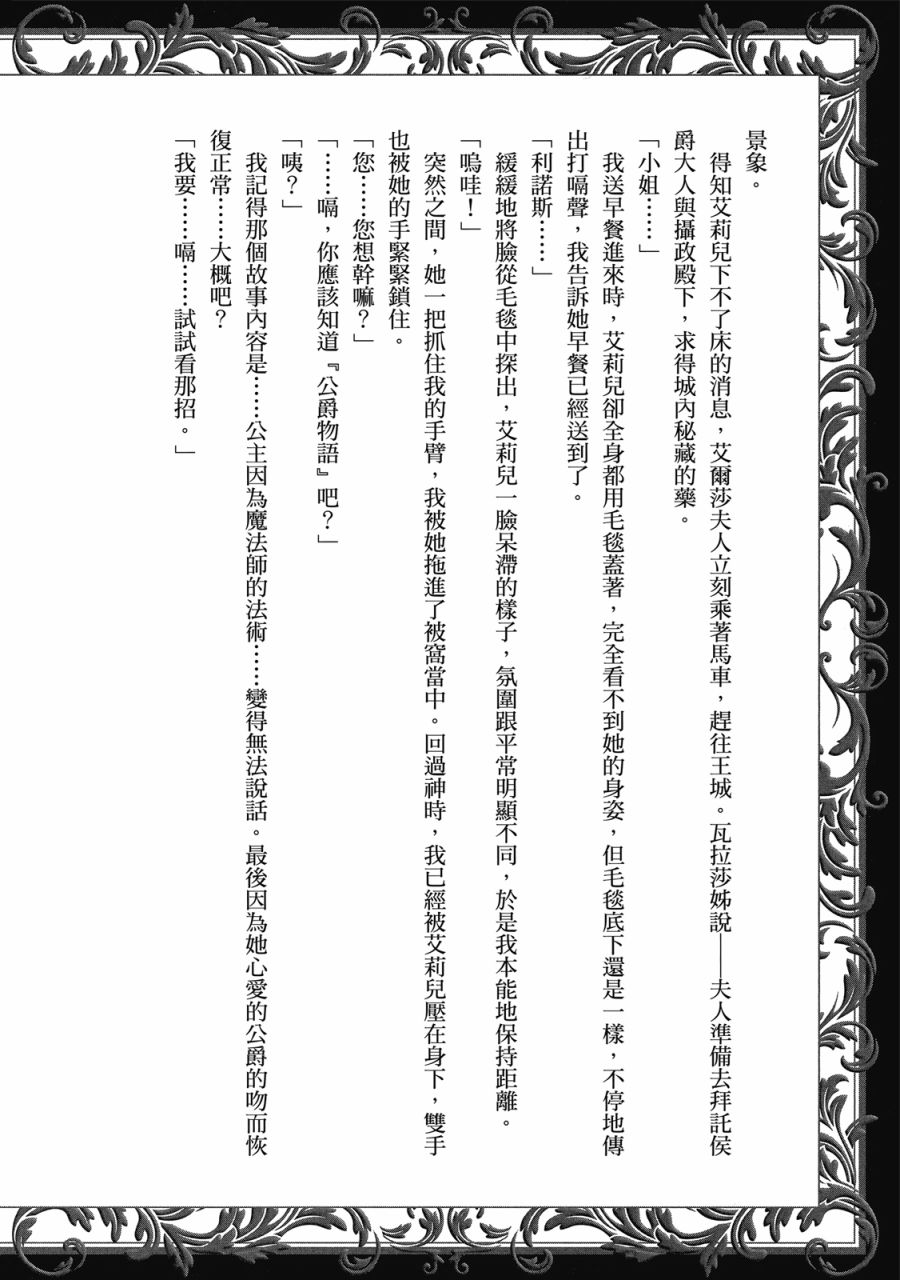 景象。
得知艾莉兒下不了床的消息，艾爾莎夫人立刻乘著馬車，趕往王城。瓦拉莎姊說——夫人準備去拜託侯
爵大人與攝政殿下，求得城內秘藏的藥。
「小姐……」
我送早餐進來時，艾莉兒卻全身都用毛毯蓋著，完全看不到她的身姿，但毛毯底下還是一樣，不停地傳
出打嗝聲，我告訴她早餐已經送到了。
「利諾斯……」
緩緩地將臉從毛毯中探出，艾莉兒一臉呆滯的樣子，氛圍跟平常明顯不同，於是我本能地保持距離。
「嗚哇！」
突然之間，她一把抓住我的手臂，我被她拖進了被窩當中。回過神時，我已經被艾莉兒壓在身下，雙手
也被她的手緊緊鎖住。
「您……您想幹嘛？」
「……嗝，你應該知道『公爵物語』吧？」
「咦？」
我記得那個故事內容是……公主因為魔法師的法術……變得無法說話。最後因為她心愛的公爵的吻而恢
復正常……大概吧？
「我要……嗝……試試看那招。」